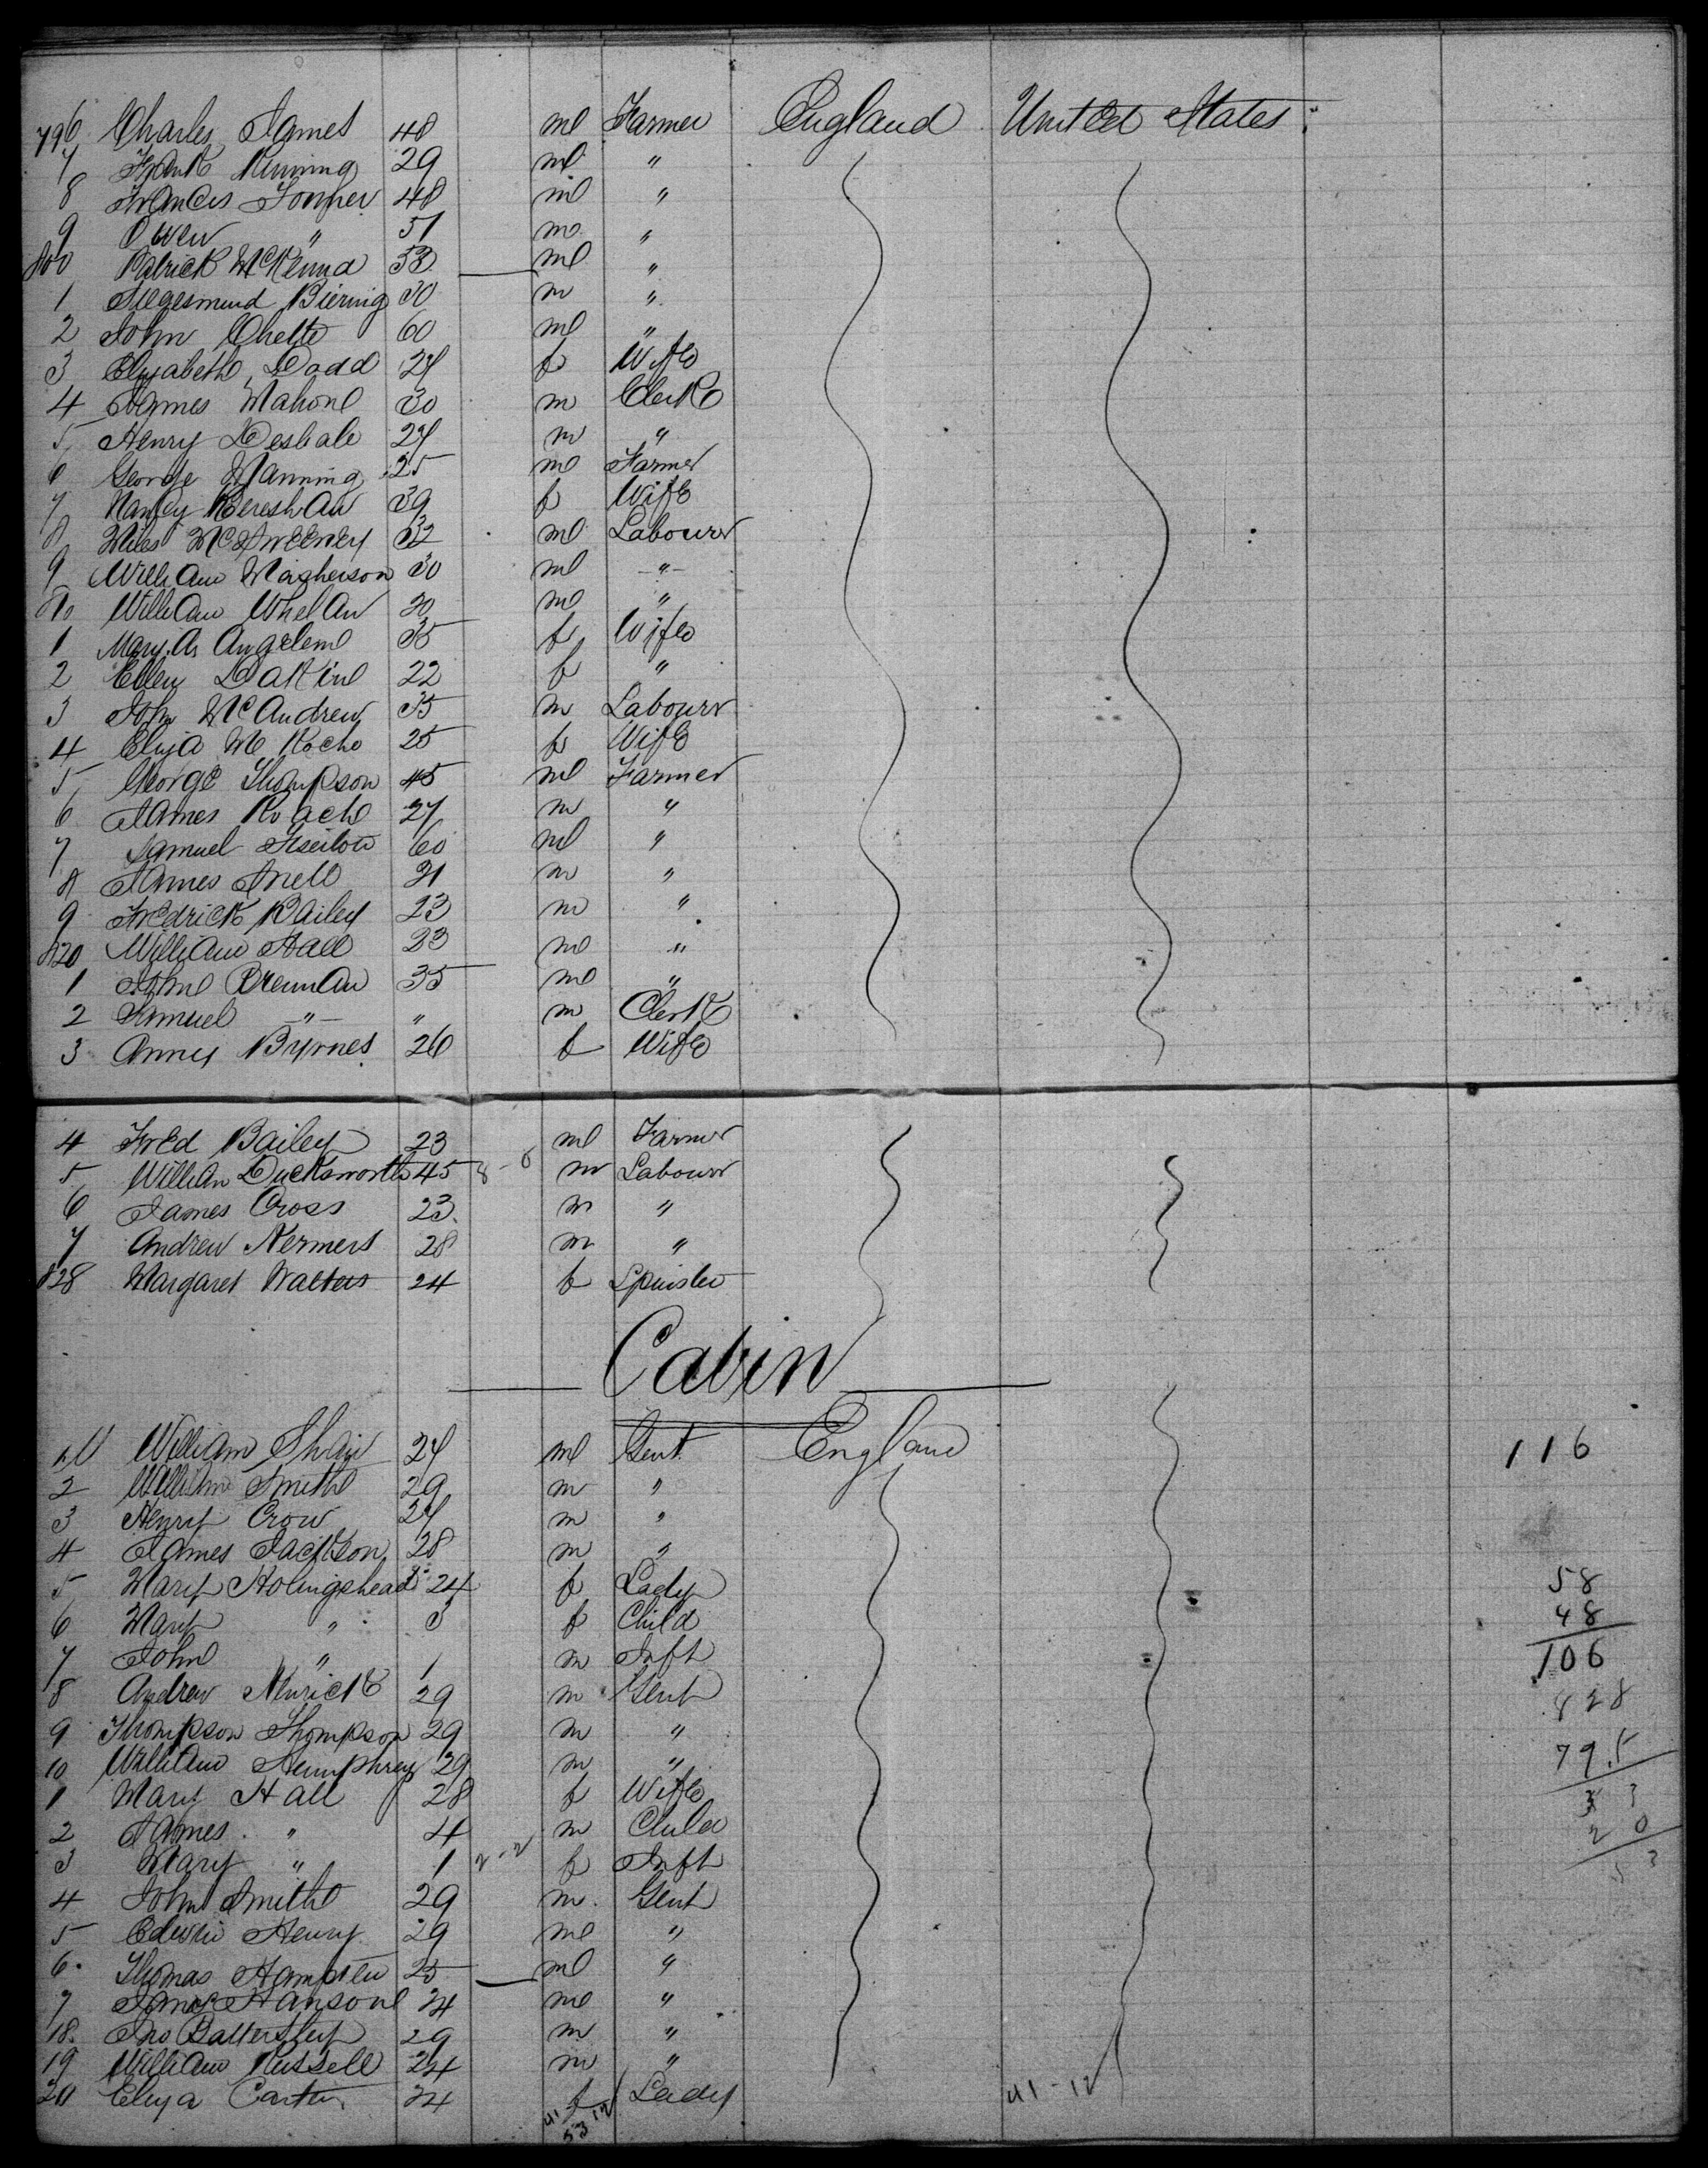 796 Charles James 48 m Farmer England United States
7 Frank Running 29 m "
8 Francis 48 m "
9 Owen " 51 m "
800 Patrick McKenna 33 m "
1 Biering 30 m "
2 John 60 m "
3 Elizabeth Dodd 24 f Wife
4 James Mahone 30 m Clerk
5 Henry 24 m "
6 George Manning 25 m Farmer
7 Nancy Kereshaw 39 f Wife
8 Miles McSweeney 32 m Labourer
9 William 30 m "
810 William Whelan 30 m "
1 Mary A 35 f Wife
2 Ellen Dakin 22 f "
3 John McAndrew 35 m Labourer
4 Eliza 25 f Wife
5 George Thompson 45 m Farmer
6 James Roache 27 m "
7 Samuel 60 m "
8 James Snell 31 m "
9 Fredrick Bailey 23 m "
820 William Hall 23 m "
1 John Brennan 35 m "
2 Samuel " " m Clerk
3 Anny Byrnes 26 f Wife
4 Fred Bailey 23 m Farmer
5 William Ducksworth 45 m Labourer
6 James Cross 23 m "
7 Andrew Nermers 28 m "
828 Margaret Walters 24 f Spinster
Cabin
1 William 24 m Gent England 116
2 William Smith 29 m "
3 Henry Crow 24 m "
4 James Jackson 28 m "
5 Mary Holingshead 24 f Lady 58
6 Mary " 3 f Child 48
7 John " 1 m Inft 106
8 Andrew 29 m Gent 828
9 Thompson Thompson 29 m "
10 William Humphreys 29 m " 795
1 Mary Hall 28 f Wife 33
2 James " 4 m Child 20
3 Mary " 1 f Inft 53
4 John Smith 29 m Gent
5 Edwin Henry 29 m "
6 Thomas 25 m "
7 James Hanson 24 m "
18 Jno Battersby 29 m "
19 William Russell 24 m "
20 Eliza Carter 24 f Lady 41-12
41 12
53